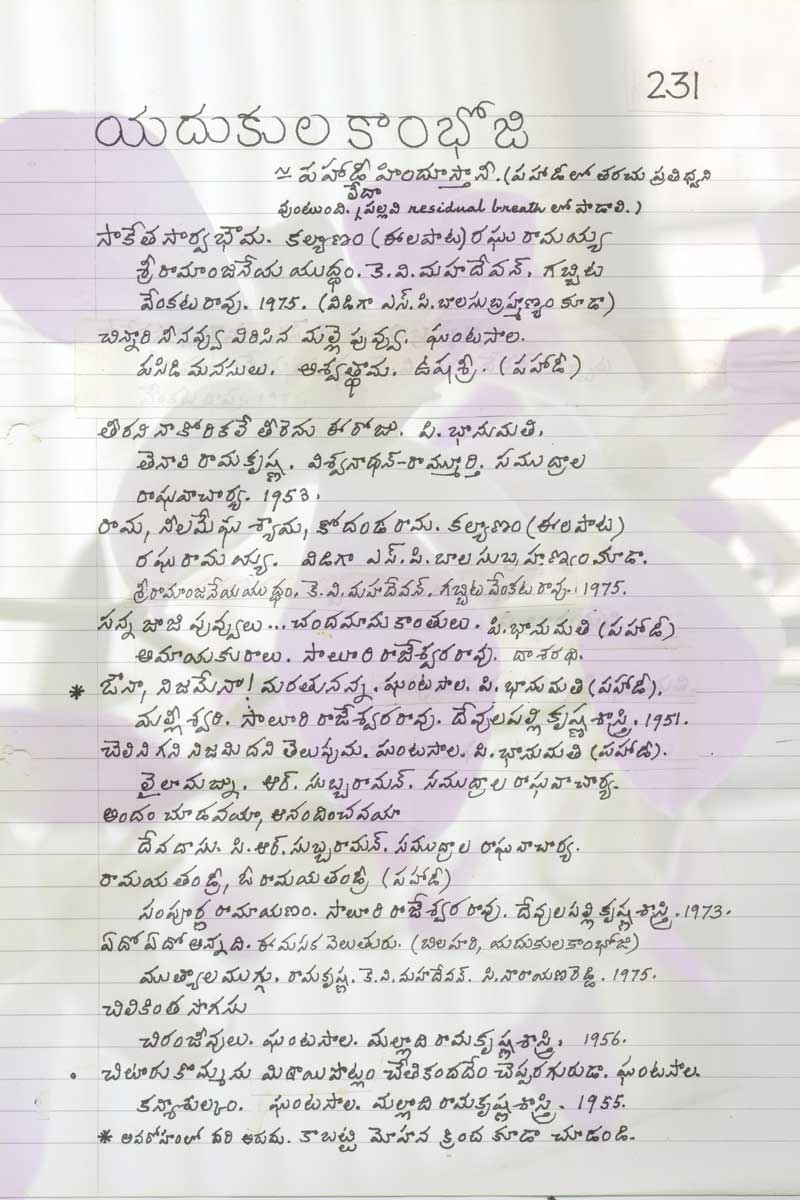 231
యదుకుల కాంభోజి
≈ పహాడీ హిందూస్తానీ. (పహాడీలో తరచు ప్రతిధ్వని
లేదా
వుంటుంది. (పల్లవి residual breath లో పాడాలి.)
సాకేత సార్వభౌమ. కల్యాణం (ఈలపాట) రఘురామయ్య
శ్రీరామాంజనేయ యుద్ధం. కె.వి.మహదేవన్, గబ్బిట
వేంకటరావు. 1975. (విడిగా ఎస్.పి.బాలసుబ్రహ్మణ్యం కూడా)
చిన్నారి నీ నవ్వు విరిసిన మల్లె పువ్వు. ఘంటసాల.
పసిడి మనసులు. అశ్వత్థామ. ఉషశ్రీ. (పహాడీ)
తీరెని నా కోరికలే తీరెను ఈ రోజు. పి. భానుమతి.
తెనాలి రామకృష్ణ. విశ్వనాథన్-రామ్మూర్తి. సముద్రాల
రాఘవాచార్య. 1953.
రామ, నీలమేఘ శ్యామ, కోదండ రామ. కల్యాణం (ఈలపాట)
రఘురామయ్య. విడిగా ఎస్.పి.బాల సుబ్రహ్మణ్యం కూడా.
శ్రీరామాంజనేయయుద్ధం. కె.వి.మహాదేవన్. గబ్బిట వేంకటరావు. 1975.
సన్న జాజి పువ్వులు... చందమామ కాంతులు. పి.భానుమతి (పహాడీ)
అమాయకురాలు. సాలూరి రాజేశ్వరరావు. దాశరథి.
* ఔనా, నిజమేనా! మరతునన్న. ఘంటసాల. పి. భానుమతి (పహాడీ).
మల్లీశ్వరి. సాలూరి రాజేశ్వరరావు. దేవులపల్లి కృష్ణశాస్త్రి. 1951.
చెలినిగని నిజమిదని తెలుపుమ. ఘంటసాల. పి.భానుమతి (పహాడీ).
లైలామజ్ను. ఆర్. సుబ్బరామన్. సముద్రాల రాఘవాచార్య.
అందం చూడవయా, ఆనందించవయా
దేవదాసు. సి.ఆర్.సుబ్బరామన్. సముద్రాల రాఘవాచార్య.
రామయ తండ్రీ, ఓ రామయ తండ్రీ (పహాడీ)
సంపూర్ణ రామాయణం. సాలూరి రాజేశ్వరరావు. దేవులపల్లి కృష్ణశాస్త్రి. 1973.
ఏదో ఏదో అన్నది. ఈ మసక వెలుతురు. (బిలహరి, యదుకులకాంభోజి)
ముత్యాలముగ్గు. రామకృష్ణ. కె.వి.మహదేవన్. సి.నారాయణరెడ్డి. 1975.
చిలికింత సొగసు
చిరంజీవులు. ఘంటసాల. మల్లాది రామకృష్ణశాస్త్రి. 1956.
• చిటారు కొమ్మను మిఠాయిపొట్లం చేతికందదేం చెప్పరగురుడా. ఘంటసాల.
కన్యాశుల్కం. ఘంటసాల. మల్లాది రామకృష్ణశాస్త్రి. 1955.
* అవరోహంలో దరి అరుదు. కాబట్టి మోహన క్రింద కూడా చూడండి.